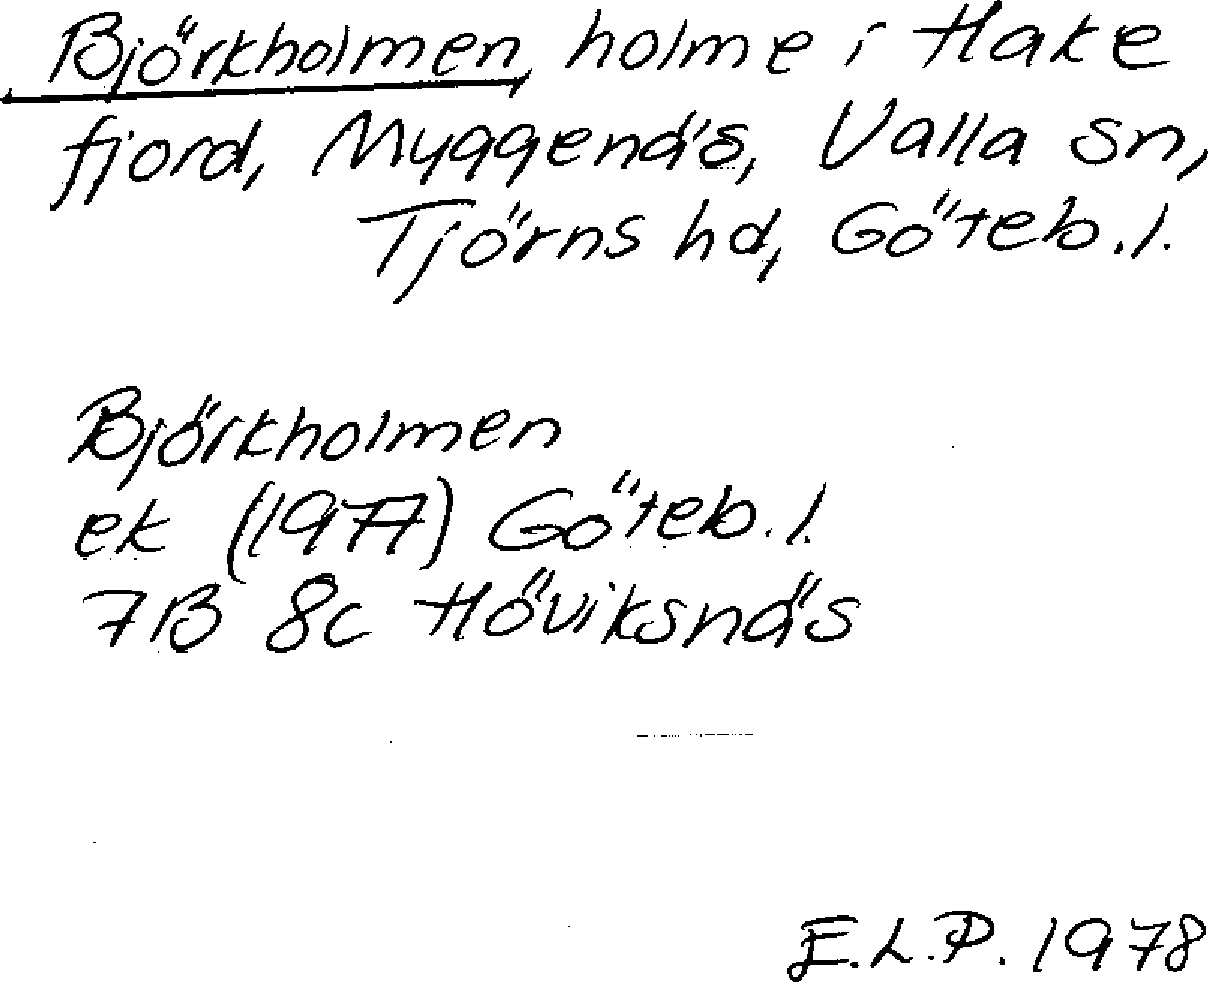 Björkholmen, holme i Hake
fjord, Myggenäs, Valla sn,
Tjörns hd, Göteb. l.
Björkholmen
ek (1977) Göteb. l.
7B 8c Höviksnäs
E.L.P. 1978